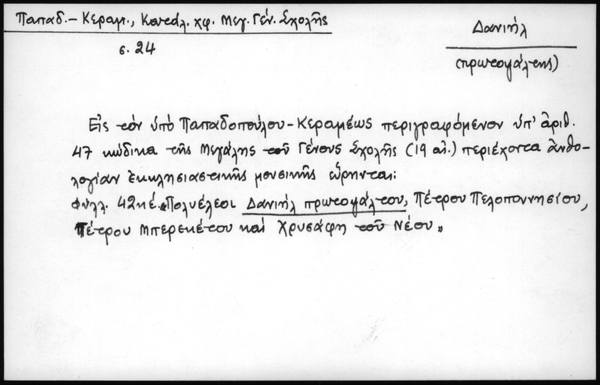 Παπαδ.-Κεραμ., Κατάλ. χφ. Μεγ. Γέν. Σχολῆς
σ. 24
Δανιήλ
(πρωτοψάλτης)
Εἰς τόν ὑπό Παπαδοπούλου-Κεραμέως περιγραφόμενον ὑπ' ἀριθ.
47 κώδικα τῆς Μεγάλης τοῦ Γένους Σχολῆς (19 αἰ.) περιέχοντα ἀνθο-
λογίαν ἐκκλησιαστικῆς μουσικῆς εὕρηνται:
Φύλλ. 42κέ. "Πολυέλεοι Δανιήλ πρωτοψάλτου, Πέτρου Πελοποννησίου,
Πέτρου Μπερεκέτου καί Χρυσάφη τοῦ Νέου".